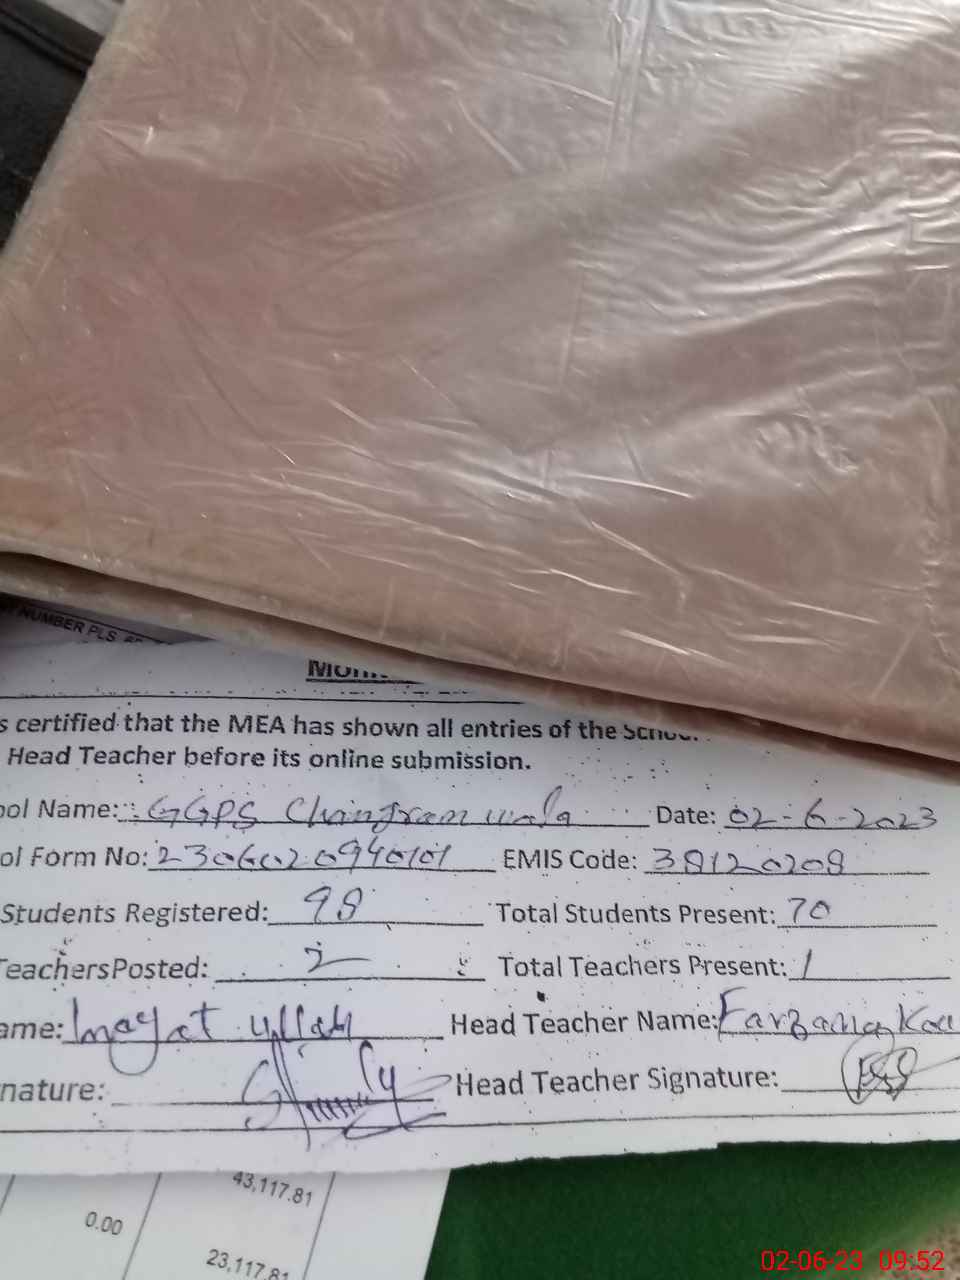 NUMBER PLS
s certified that the MEA has shown all entries of the School
Head Teacher before its online submission.
ool Name: GGPS Date: 02-6-2023
ol Form No: 2306020940101 EMIS Code: 38120208
Students Registered: 98 Total Students Present: 70
TeachersPosted: 2 Total Teachers Present: 1
ame: Inayat ullah Head Teacher Name: Farzana Kau
nature: Head Teacher Signature:
43,117.81
0.00
23,117.81
02-06-23 09:52